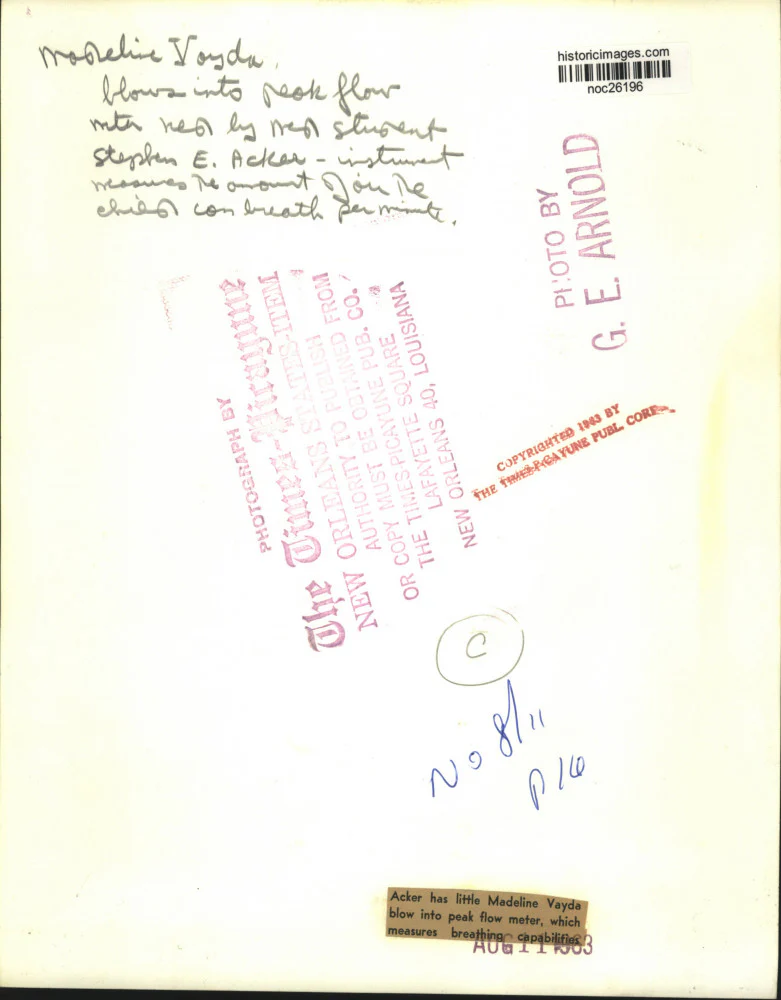 Madeline Vayda,
blows into peak flow
meter held by med student
Stephen E. Acker - instrument
measures the amount of air the
child can breath per minute.
historicimages.com
noc26196
PHOTO BY
G. E. ARNOLD
PHOTOGRAPH BY
The Times-Picayune
NEW ORLEANS STATES-ITEM
AUTHORITY TO PUBLISH
OR COPY MUST BE OBTAINED FROM
THE TIMES-PICAYUNE PUB. CO.
LAFAYETTE SQUARE
NEW ORLEANS 40, LOUISIANA
COPYRIGHTED 1963 BY
THE TIMES-PICAYUNE PUBL. CORP.
C
NO 8/11
P16
Acker has little Madeline Vayda
blow into peak flow meter, which
measures breathing capabilities
AUG 11 1963